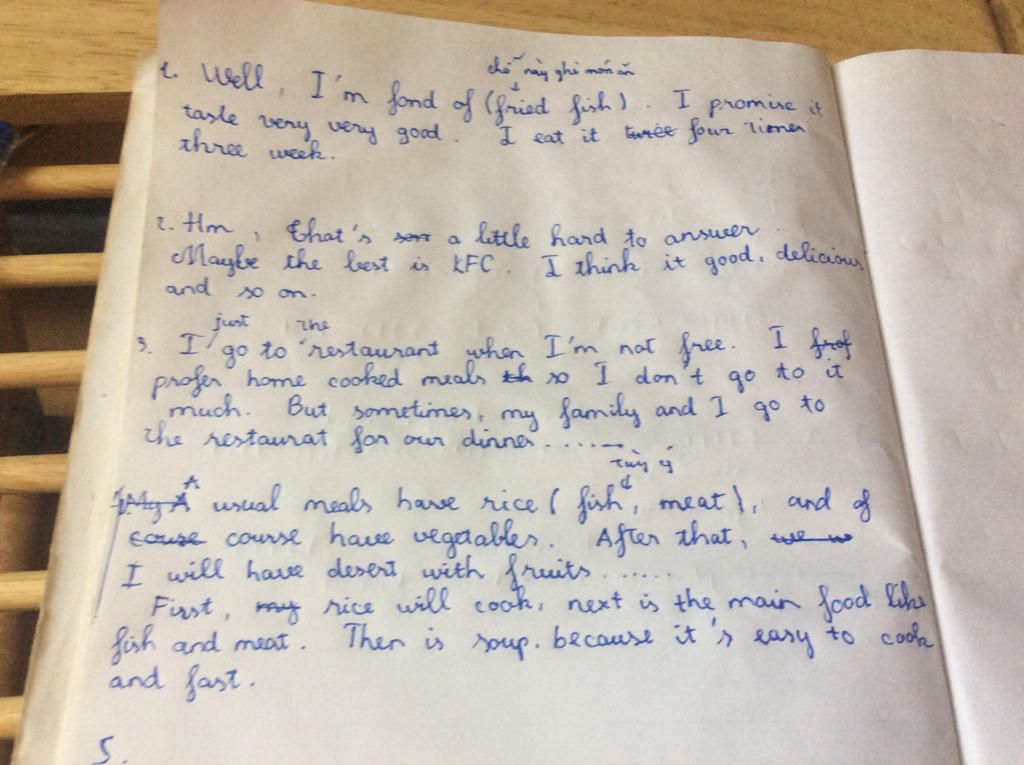 chỗ này ghi món ăn
1. Well, I'm fond of (fried fish). I promise it
taste very very good. I eat it four times
three week.
2. Hm, that's a little hard to answer.
Maybe the best is KFC. I think it good, delicious
and so on.
just the
3. I go to restaurant when I'm not free. I
profer home cooked meals so I don't go to it
much. But sometimes, my family and I go to
the restaurat for our dinner.....
tùy ý
A usual meals have rice (fish, meat), and of
course have vegetables. After that,
I will have desert with fruits......
First, rice will cook, next is the main food like
fish and meat. Then is soup. because it's easy to cook
and fast.
5.